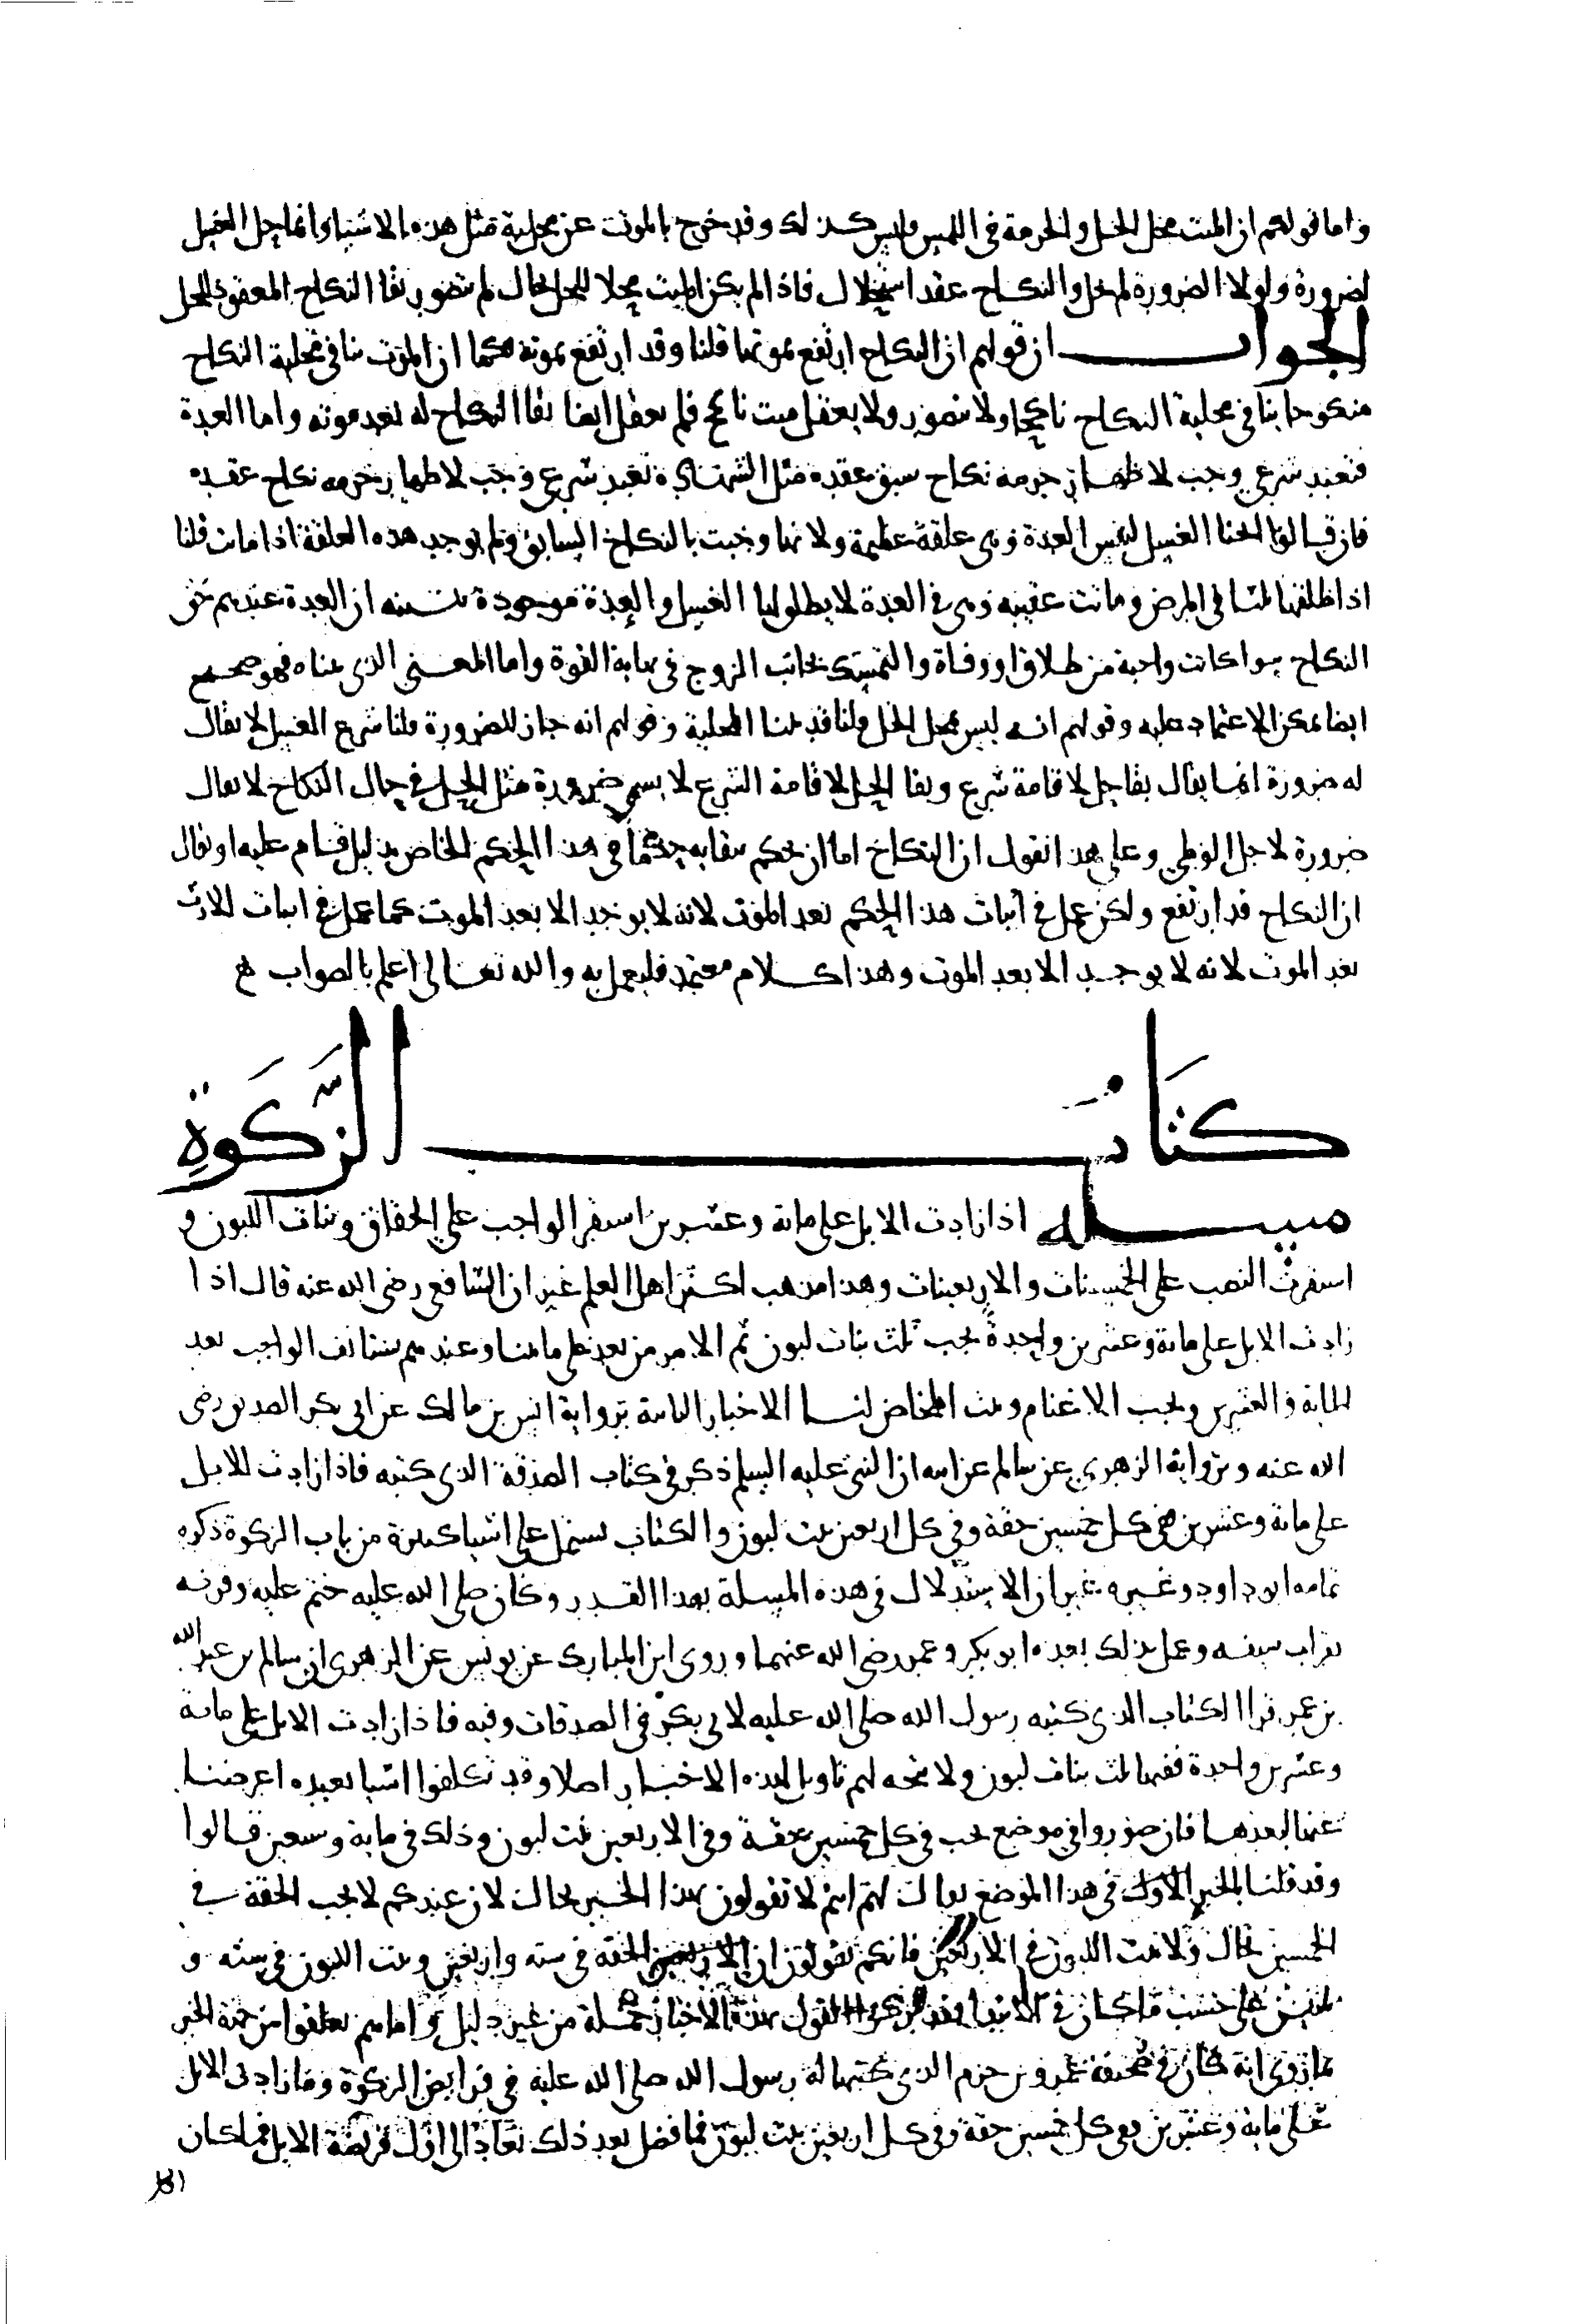 واما قولهم ان الميت محل الحل والحرمة في اللمس وليس كذلك وقد خرج بالموت عن محلية مثل هذه الاشيا وانما حل الغسل
لضرورة ولولا الضرورة لم يحل والنكاح عقد استحلال فاذا لم يكن الميت محلا للحل بحال لم يتصور بقا النكاح المعقود للحل
الجواب ان قولهم ان النكاح ارتفع بموتها قلنا وقد ارتفع بموته كما ان الموت ينافي محلية النكاح
منكوحا ينافي محلية النكاح ناكحا ولا يتصور ولا يعقل ميت ناكح فلم يعقل ايضا بقا النكاح له بعد موته واما العدة
فتعبد شرعي وجب لاظهار حرمة نكاح سبق عقده مثل الشهادة تعبد شرعي وجب لاظهار حرمة نكاح عقده
فان قالوا الحقنا الغسل بنفس العدة وهي علقة عظيمة ولانها وجبت بالنكاح السابق ولم يوجد هذه العلقة اذا ماتت قلنا
اذا طلقها ثلثا في المرض ومات عقيبه وهي في العدة لا يطلق لها الغسل والعدة موجودة ان العدة عندهم حق
النكاح سوا كانت واجبة من طلاق او وفاة والتمسك بجانب الزوج في نهاية القوة واما المعنى الذي بيناه فهو صحيح
ايضا يمكن الاعتماد عليه وقولهم انه ليس بمحل الحل قلنا قد بينا المحلية وقولهم انه جاز للضرورة قلنا شرع الغسل لا يقال
له ضرورة انما يقال بقا حل لاقامة شرع وبقا الحل لاقامة الشرع لا يسمى ضرورة مثل الحل في حال النكاح لا يقال
ضرورة لاجل الوطي وعلى هذا نقول ان النكاح اما ان يحكم ببقايه حكما في هذا الحكم الخاص بدليل قام عليه او نقال
ان النكاح قد ارتفع ولكن عمل في اثبات هذا الحكم بعد الموت لانه لا يوجد الا بعد الموت كما عمل في اثبات الارث
بعد الموت لانه لا يوجد الا بعد الموت وهذا كلام معتمد فليعمل به والله تعالى اعلم بالصواب
كتاب الزكوة
مسلة اذا زادت الابل على ماية وعشرين استقر الواجب على الحقاق وبنات اللبون و
استقرت النصب على الخمسينات والاربعينات وهذا مذهب اكثر اهل العلم غير ان الشافعي رضي الله عنه قال اذا
زادت الابل على ماية وعشرين واحدة يجب ثلث بنات لبون ثم الامر من بعد على ما بينا وعندهم يستانف الواجب بعد
الماية والعشرين ويجب الاغنام وبنت المخاض لنا الاخبار الثابتة برواية انس بن مالك عن ابي بكر الصديق رضي
الله عنه وبرواية الزهري عن سالم عن ابيه ان النبي عليه السلم ذكر في كتاب الصدقة الذي كتبه فاذا زادت الابل
على ماية وعشرين ففي كل خمسين حقة وفي كل اربعين بنت لبون والكتاب يشتمل على اشيا كثيرة من باب الزكوة ذكره
بتمامه ابو داود وغيره غير ان الاستدلال في هذه المسلة بهذا القدر وكان صلى الله عليه ختم عليه وقرنه
بقراب سيفه وعمل بذلك بعده ابو بكر وعمر رضي الله عنهما وروى ابن المبارك عن يونس عن الزهري ان سالم بن عبد الله
بن عمر قرا الكتاب الذي كتبه رسول الله صلى الله عليه لابي بكر في الصدقات وفيه فاذا زادت الابل على ماية
وعشرين واحدة ففيها ثلث بنات لبون ولا يتجه لهم تاويل لهذه الاخبار اصلا وقد تكلفوا اشيا بعيده اعرضنا
عنها لبعدها فان صوروا في موضع يجب في كل خمسين حقة وفي الاربعين بنت لبون وذلك في ماية وتسعين قالوا
وقد قلنا بالخبر الاول في هذا الموضع يقال لهم انتم لا تقولون بهذا الخبر بحال لان عندكم لا يجب الحقة في
الخمسين بحال ولا بنت اللبون في الاربعين فانكم تقولون ان الحقة في ستة واربعين وبنت اللبون في ستة و
ثلثين على حسب ما كان في الابتدا فقد تركوا القول بهذه الاخبار جملة من غير دليل واما هم تعلقوا من جهة الخبر
بما روي انه كان في صحيفة عمرو بن حزم الذي كتبها له رسول الله صلى الله عليه في فرايض الزكوة وما زاد في الابل
على ماية وعشرين ففي كل خمسين حقة وفي كل اربعين بنت لبون فما فضل بعد ذلك تعاد الى اول فريضة الابل فما كان